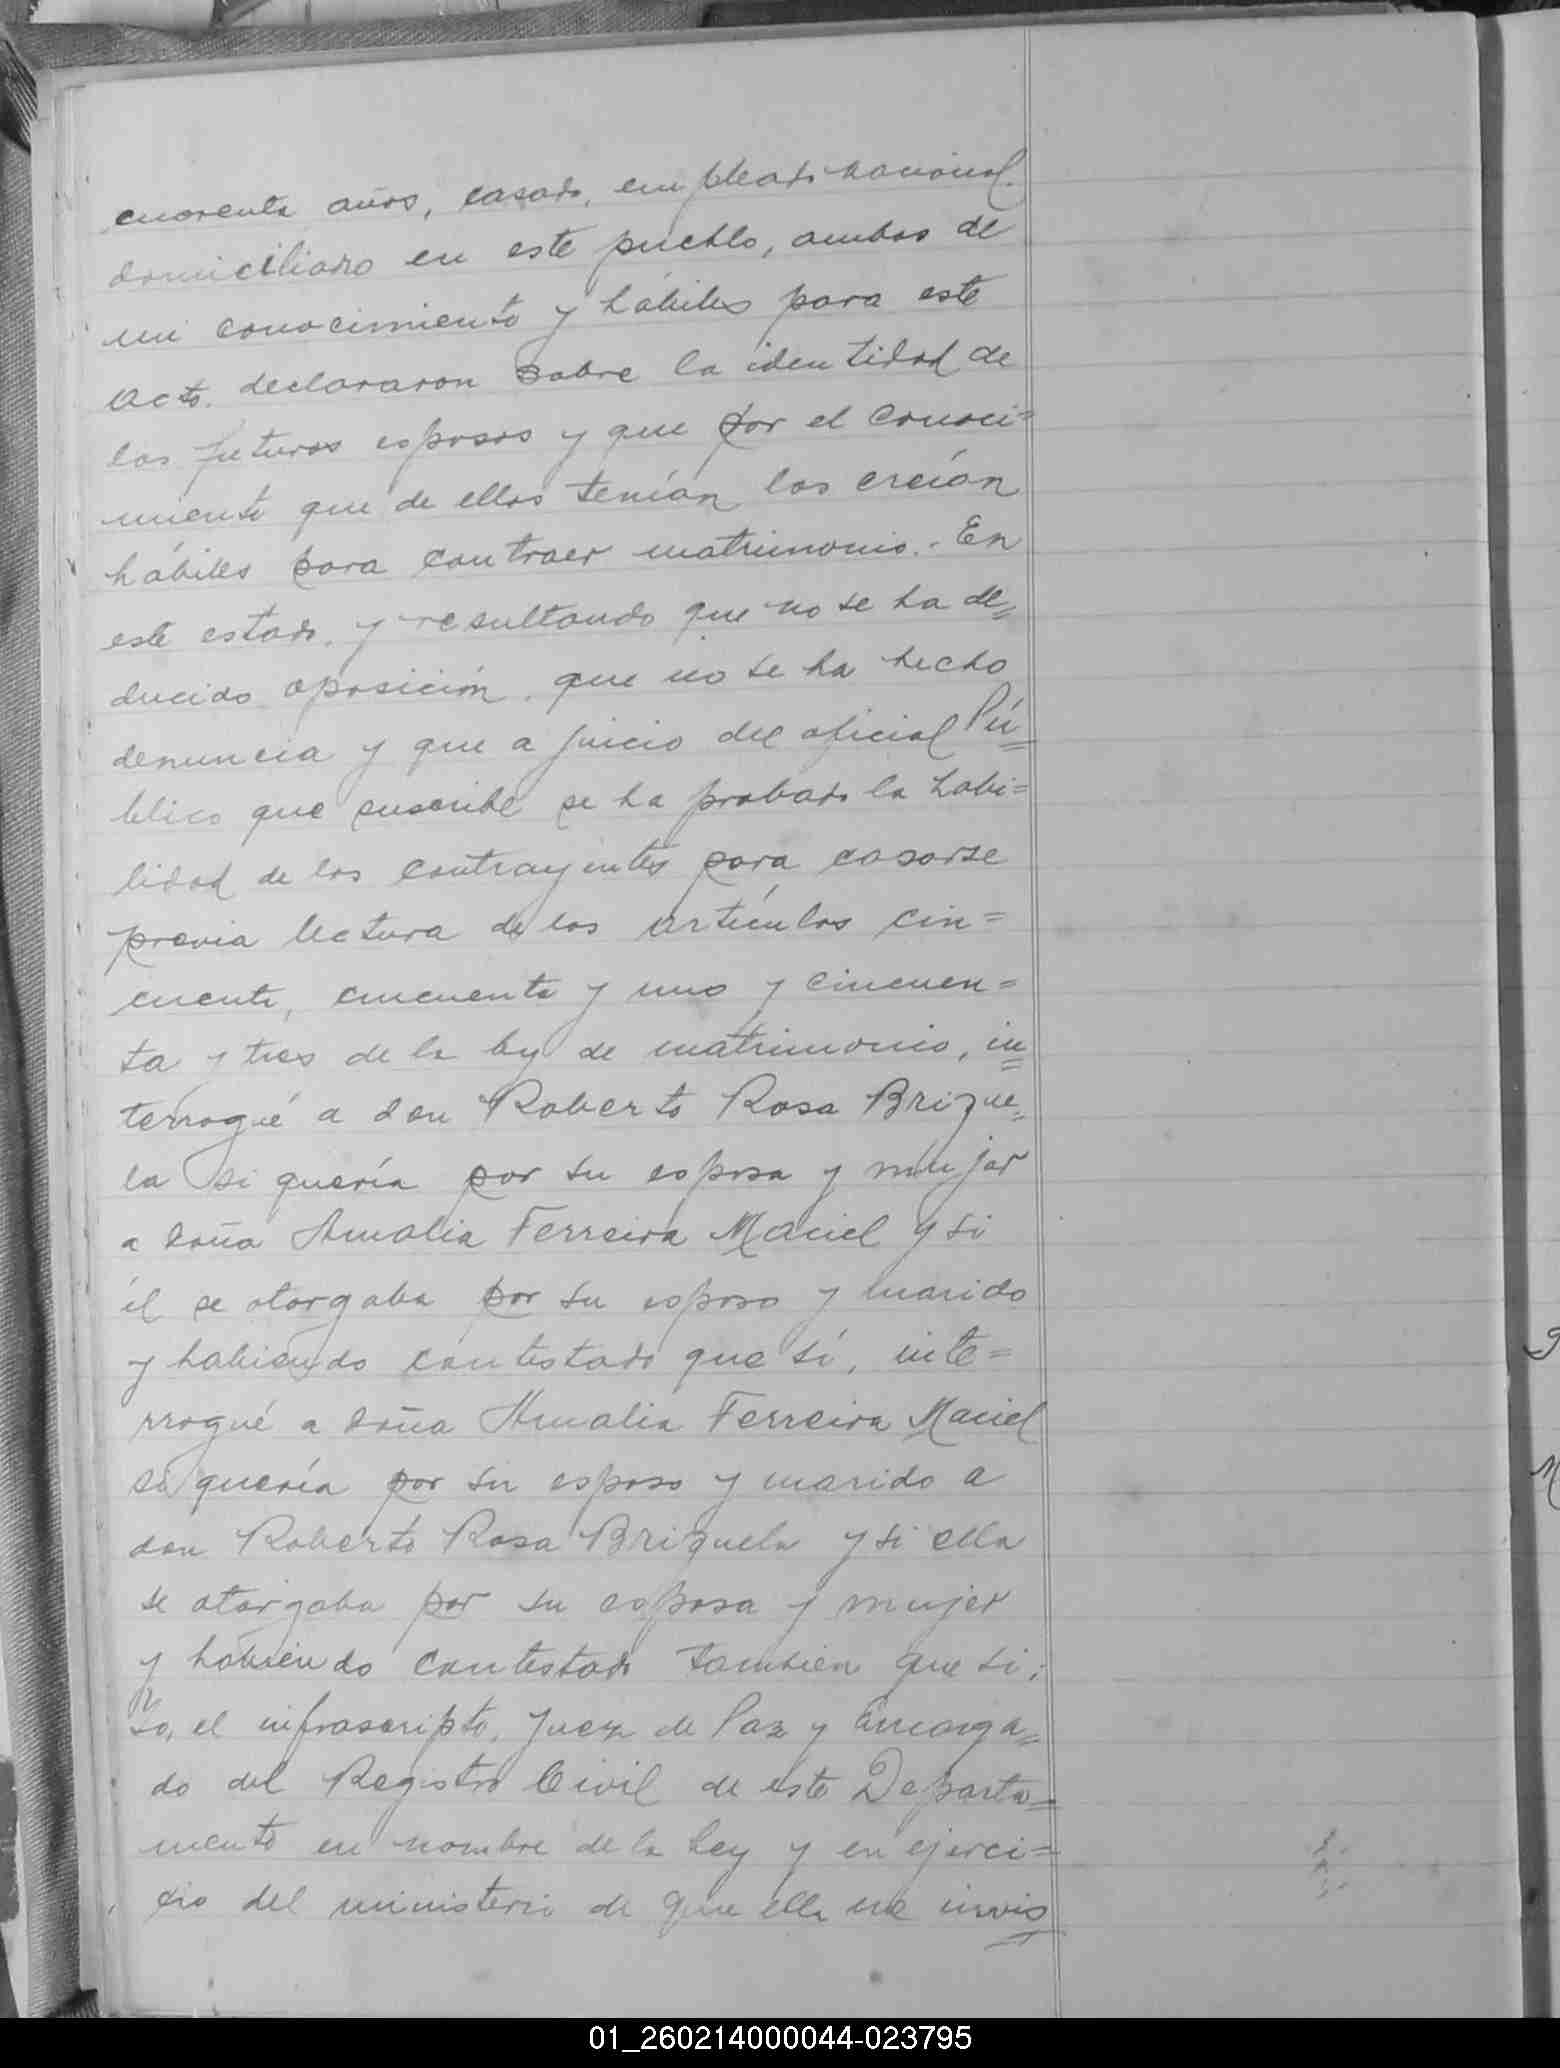 cuarenta años, casado, empleado nacional.
domiciliado en este pueblo, ambos de
mi conocimiento y hábiles para este
acto. declararon sobre la identidad de
los futuros esposos y que por el conoci=
miento que de ellos tenían los creían
hábiles para contraer matrimonio.- En
este estado, y resultando que no se ha de=
ducido oposición, que no se ha hecho
denuncia y que a juicio del oficial Pú=
blico que suscribe se ha probado la habi=
lidad de los contrayentes para casarse
previa lectura de los artículos cin=
cuenta, cincuenta y uno y cincuen=
ta y tres de la ley de matrimonio, in=
terrogué a don Roberto Rosa Brizue=
la si quería por su esposa y mujer
a doña Amalia Ferreira Maciel y si
él se otorgaba por su esposo y marido
y habiendo contestado que sí, inte=
rrogué a doña Amalia Ferreira Maciel
si quería por su esposo y marido a
don Roberto Rosa Brizuela y si ella
se otorgaba por su esposa y mujer
y habiendo contestado también que si;
Yo, el infrascripto, Juez de Paz y Encarga=
do del Registro Civil de este Departa=
mento en nombre de la Ley y en ejerci=
cio del ministerio de que ella me invis
01_260214000044-023795